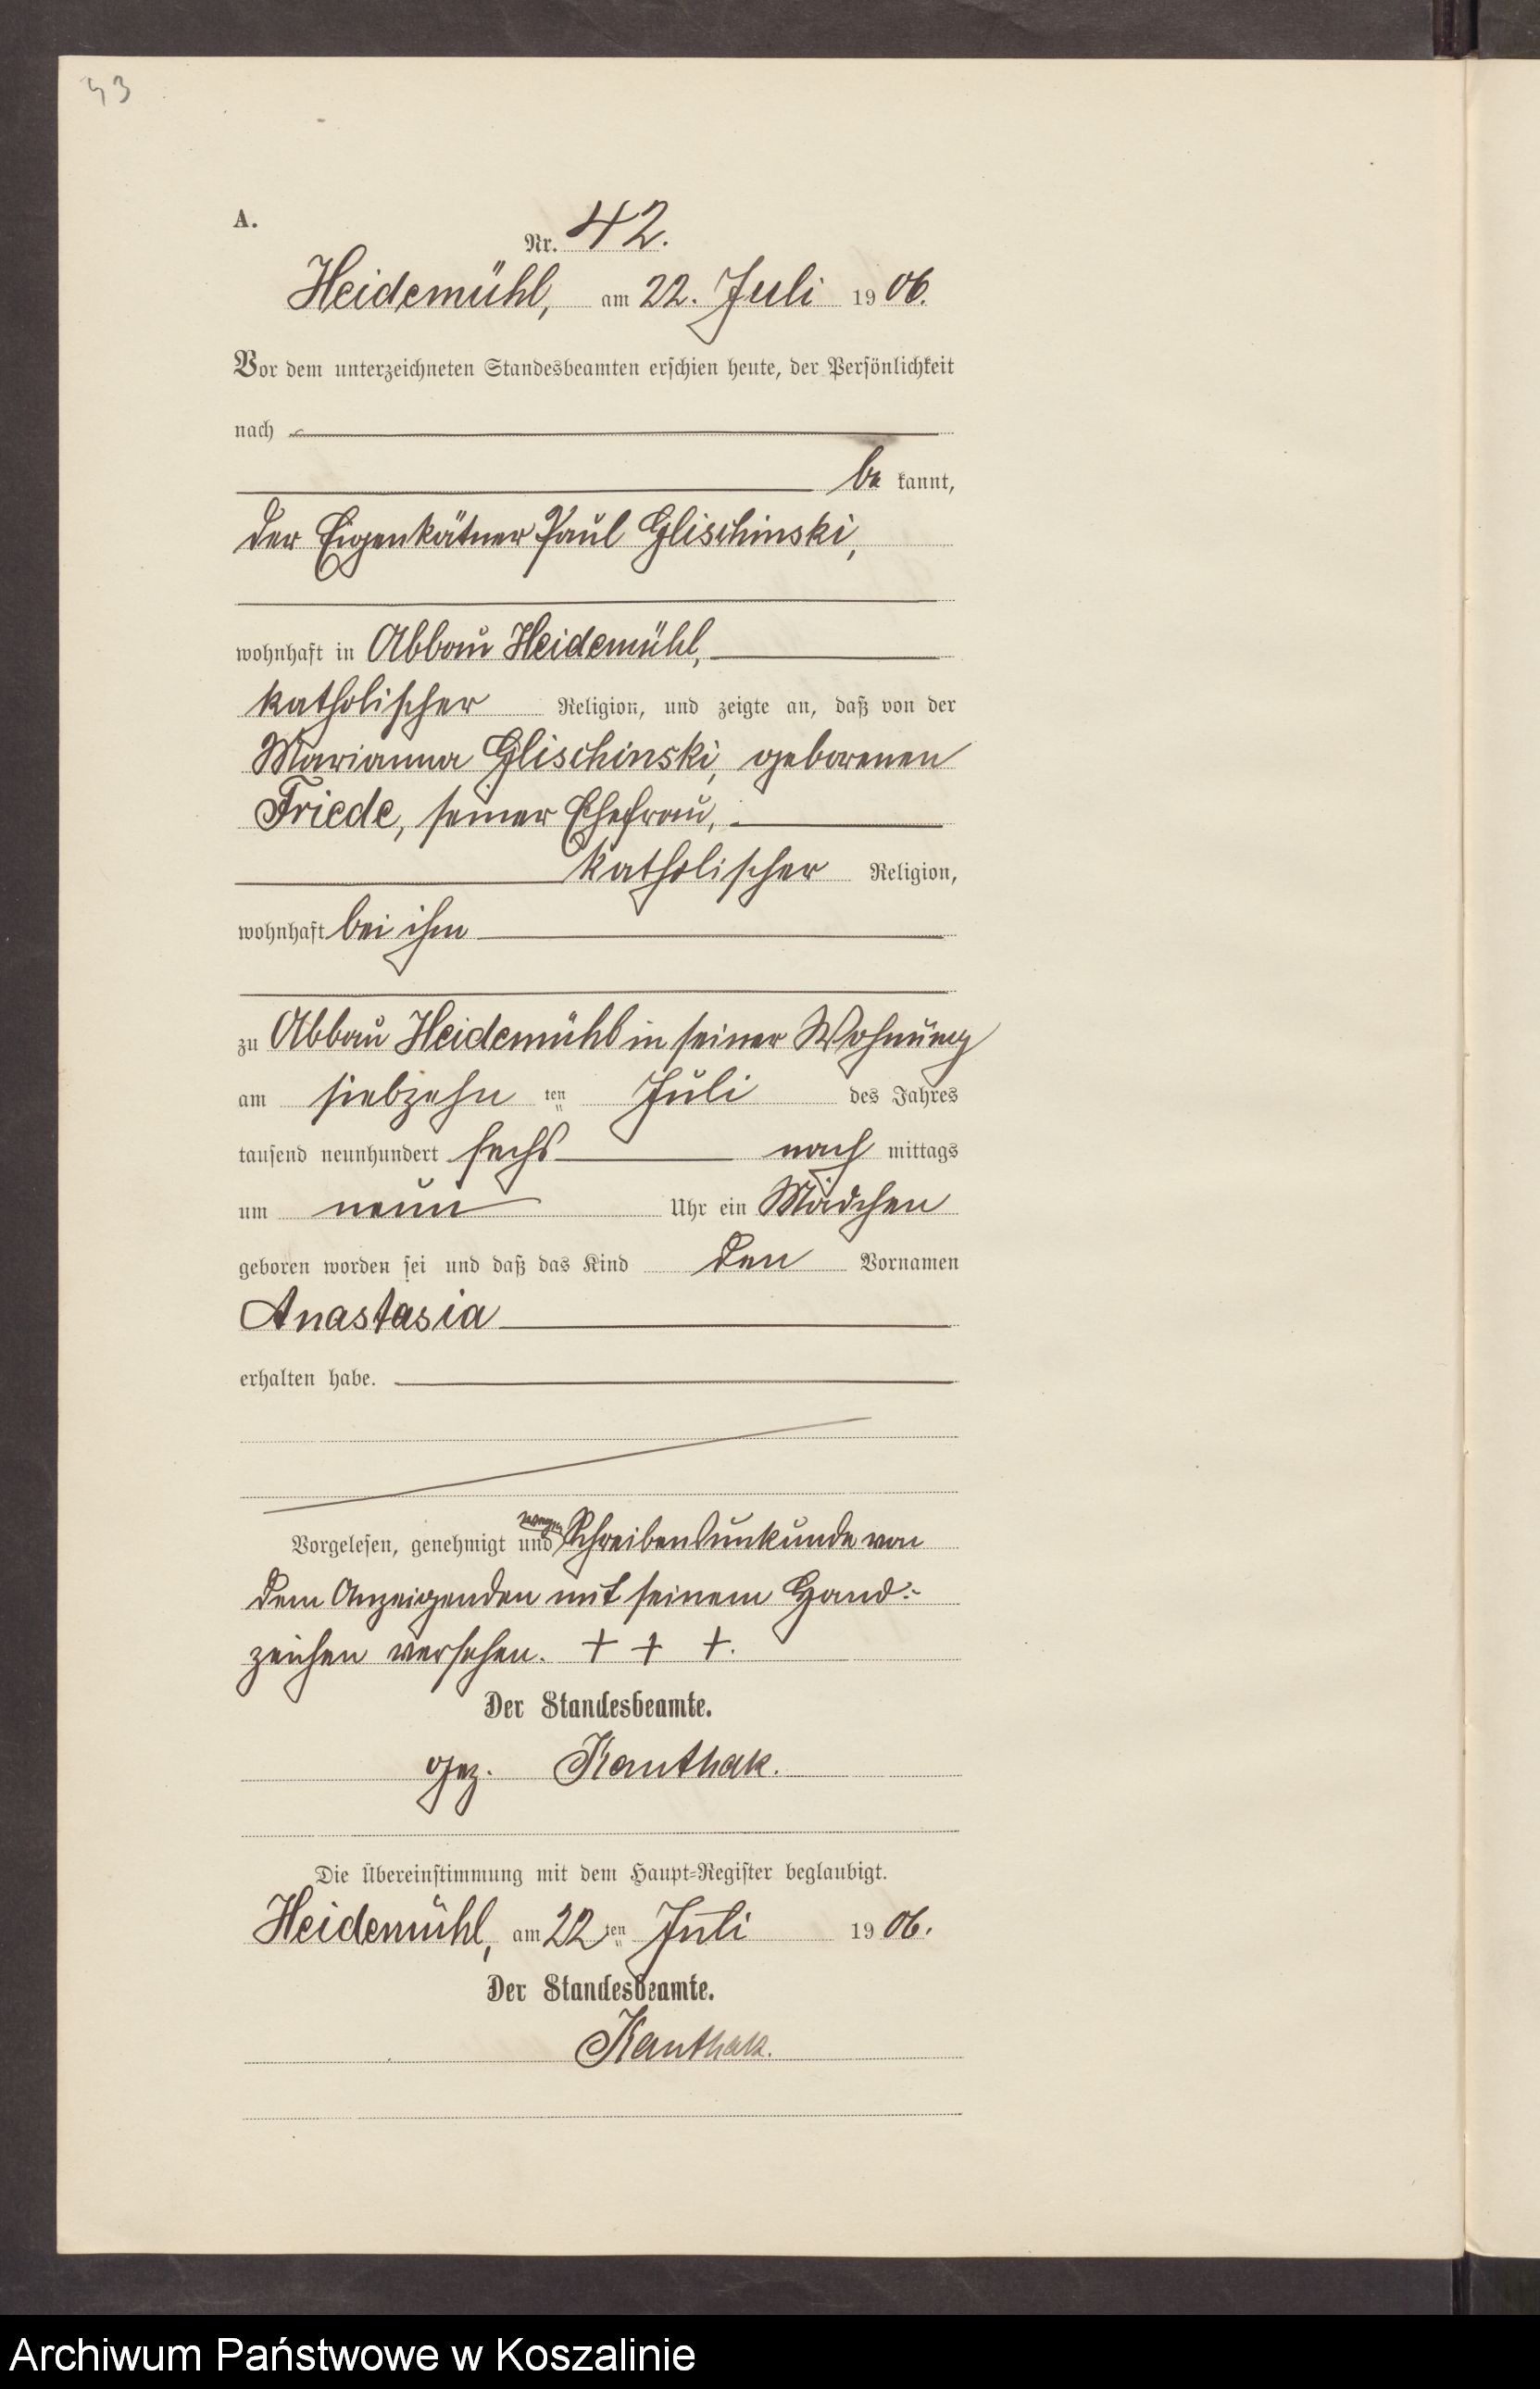 43
A.
Nr. 42.
Heidemühl, am 22. Juli 1906.
Vor dem unterzeichneten Standesbeamten erschien heute, der Persönlichkeit
nach
be kannt,
der Eigenkätner Paul Glischinski,
wohnhaft in Abbau Heidemühl,
katholischer Religion, und zeigte an, daß von der
Marianna Glischinski, geborenen
Friede, seiner Ehefrau,
katholischer Religion,
wohnhaft bei ihm
zu Abbau Heidemühl in seiner Wohnung
am siebzehn ten Juli des Jahres
tausend neunhundert sechs nach mittags
um neun Uhr ein Mädchen
geboren worden sei und daß das Kind den Vornamen
Anastasia
erhalten habe.
Vorgelesen, genehmigt und wegen Schreibensunkunde von
dem Anzeigenden mit seinem Hand-
zeichen versehen. + + +.
Der Standesbeamte.
gez. Kanthak.
Die Übereinstimmung mit dem Haupt-Register beglaubigt.
Heidemühl, am 22 ten Juli 1906.
Der Standesbeamte.
Kanthak.
Archiwum Państwowe w Koszalinie